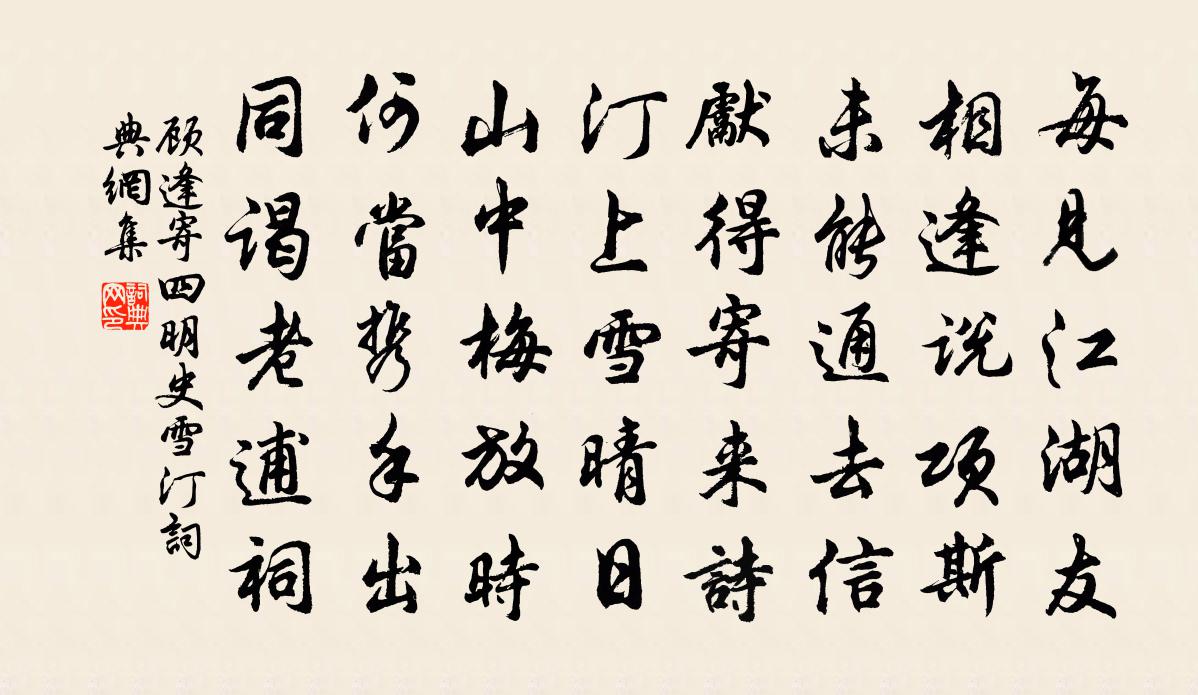 每見江湖友
相逢說項斯
未能通去信
獻得寄来詩
汀上雪晴日
山中梅放時
何當携手出
同謁老逋祠
顾逢寄四明史雪汀詞
典網集
詞典
网印